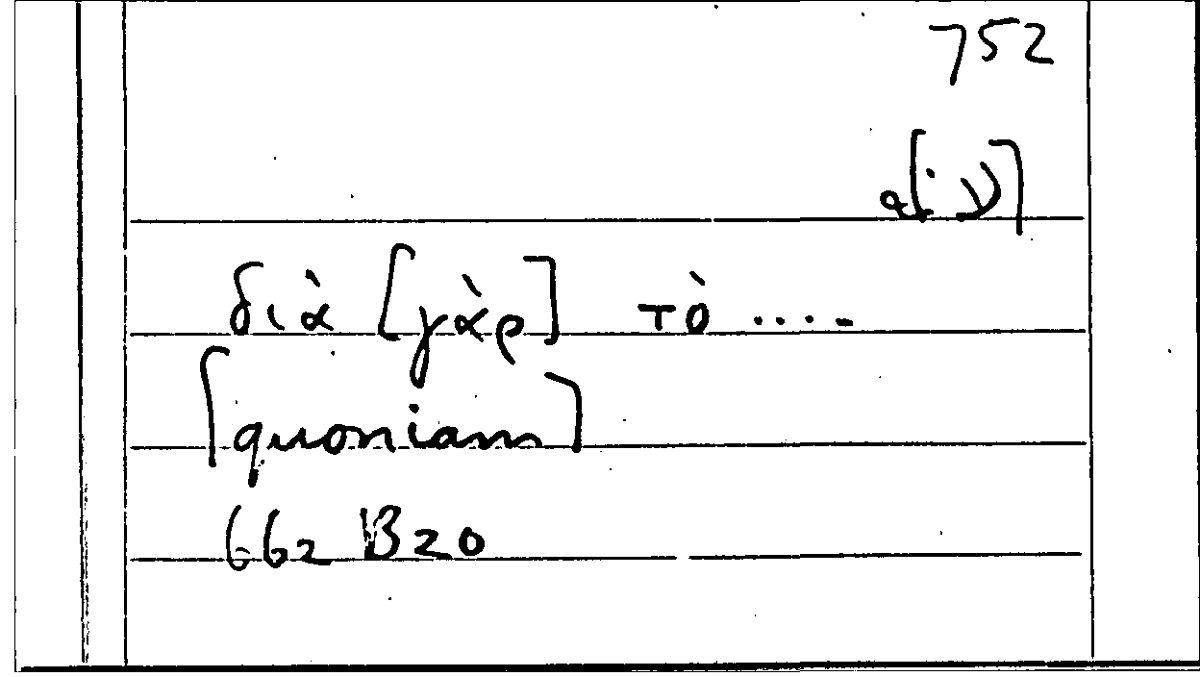 752
διὰ [γὰρ] τὸ ....
[quoniam]
662 B20